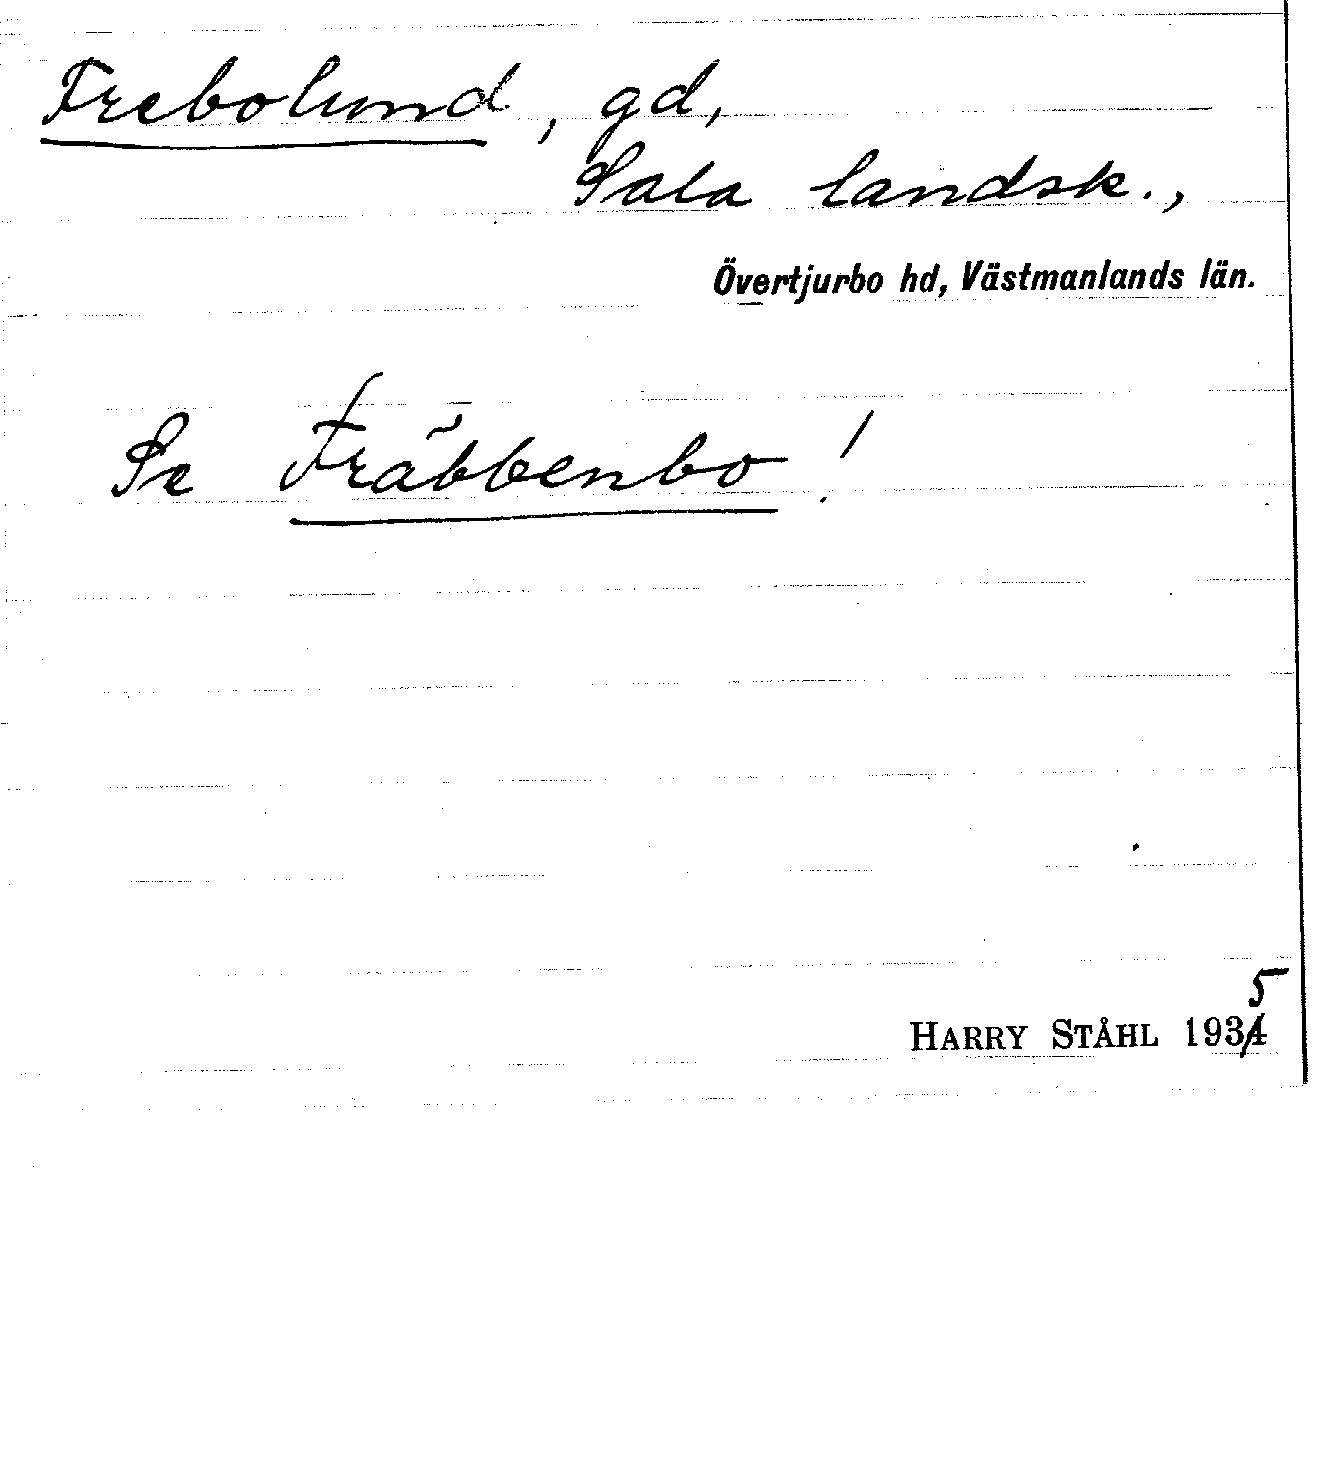 Frebolund, gd,
Sala landsk.,
Övertjurbo hd, Västmanlands län.
Se Fräbbenbo!
5
HARRY STÅHL 1934